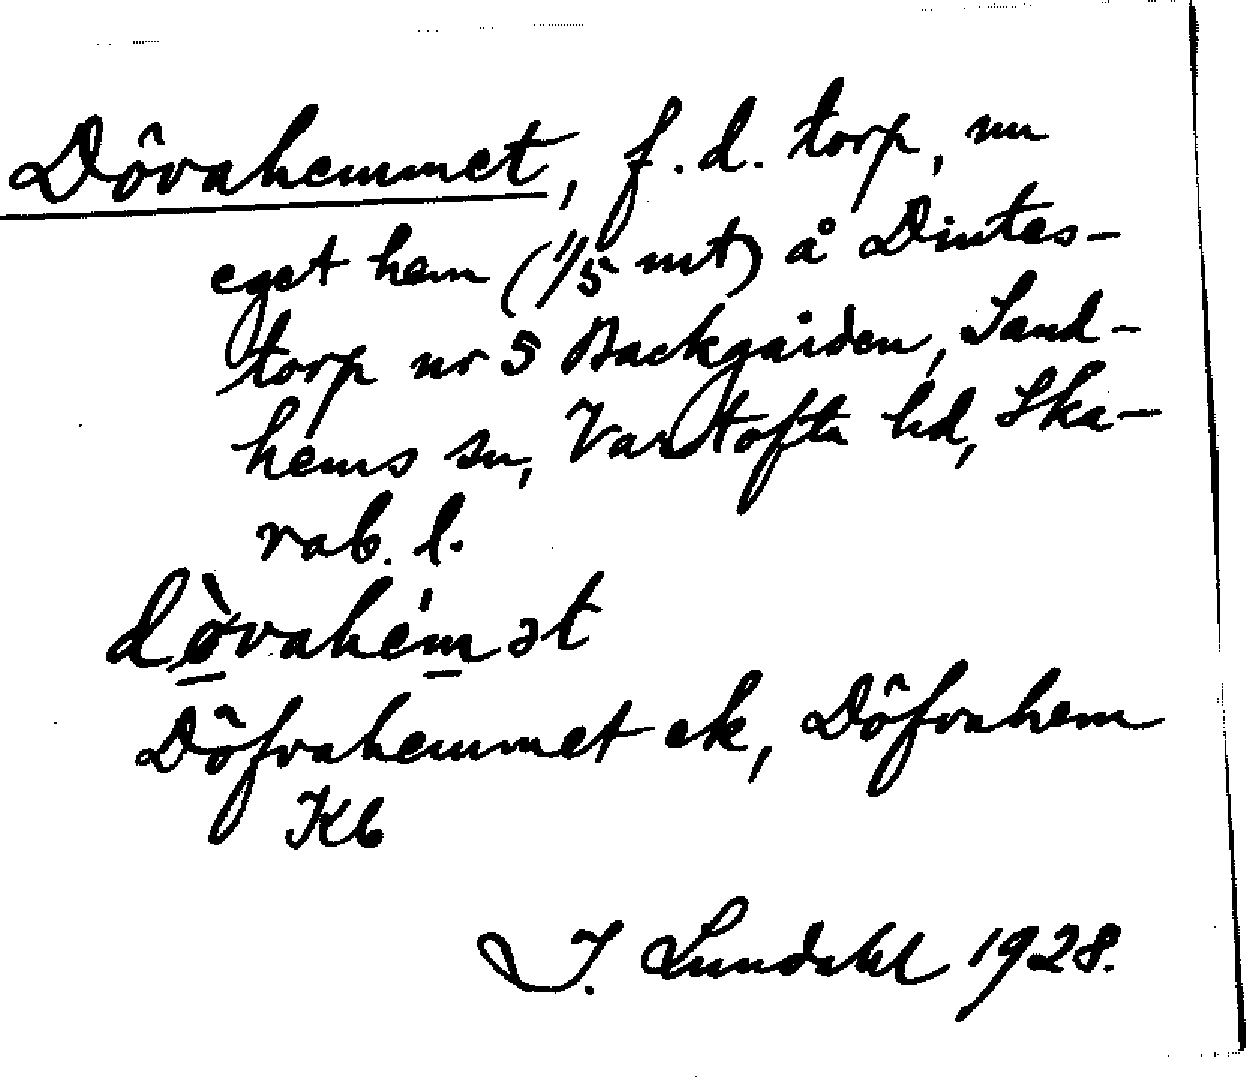 Dôvahemmet, f.d. torp, nu
eget hem (1/5 mt) å Dintes-
torp nr 5 Backgården, Sand-
hems sn, Vartofta hd, Ska-
rab. l.
dø̀vahém ət
Dôfvahemmet ek, Dôfvahem
Kb
I. Lundahl 1928.